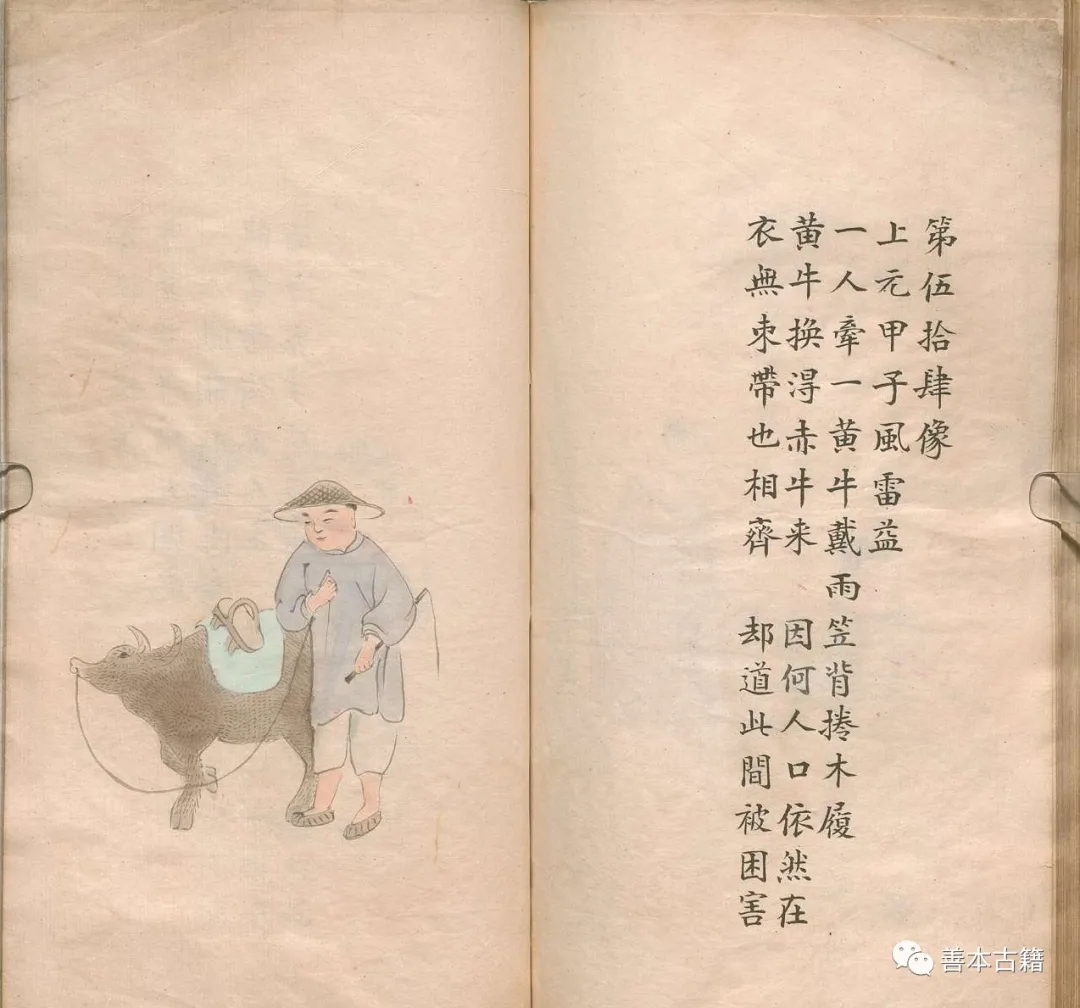 第伍拾肆像
上元甲子風雷益
一人牽一黄牛戴雨笠背捲木履
黄牛换淂赤牛来 因何人口依然在
衣無束帶也相齊 却道此間被困害
善本古籍